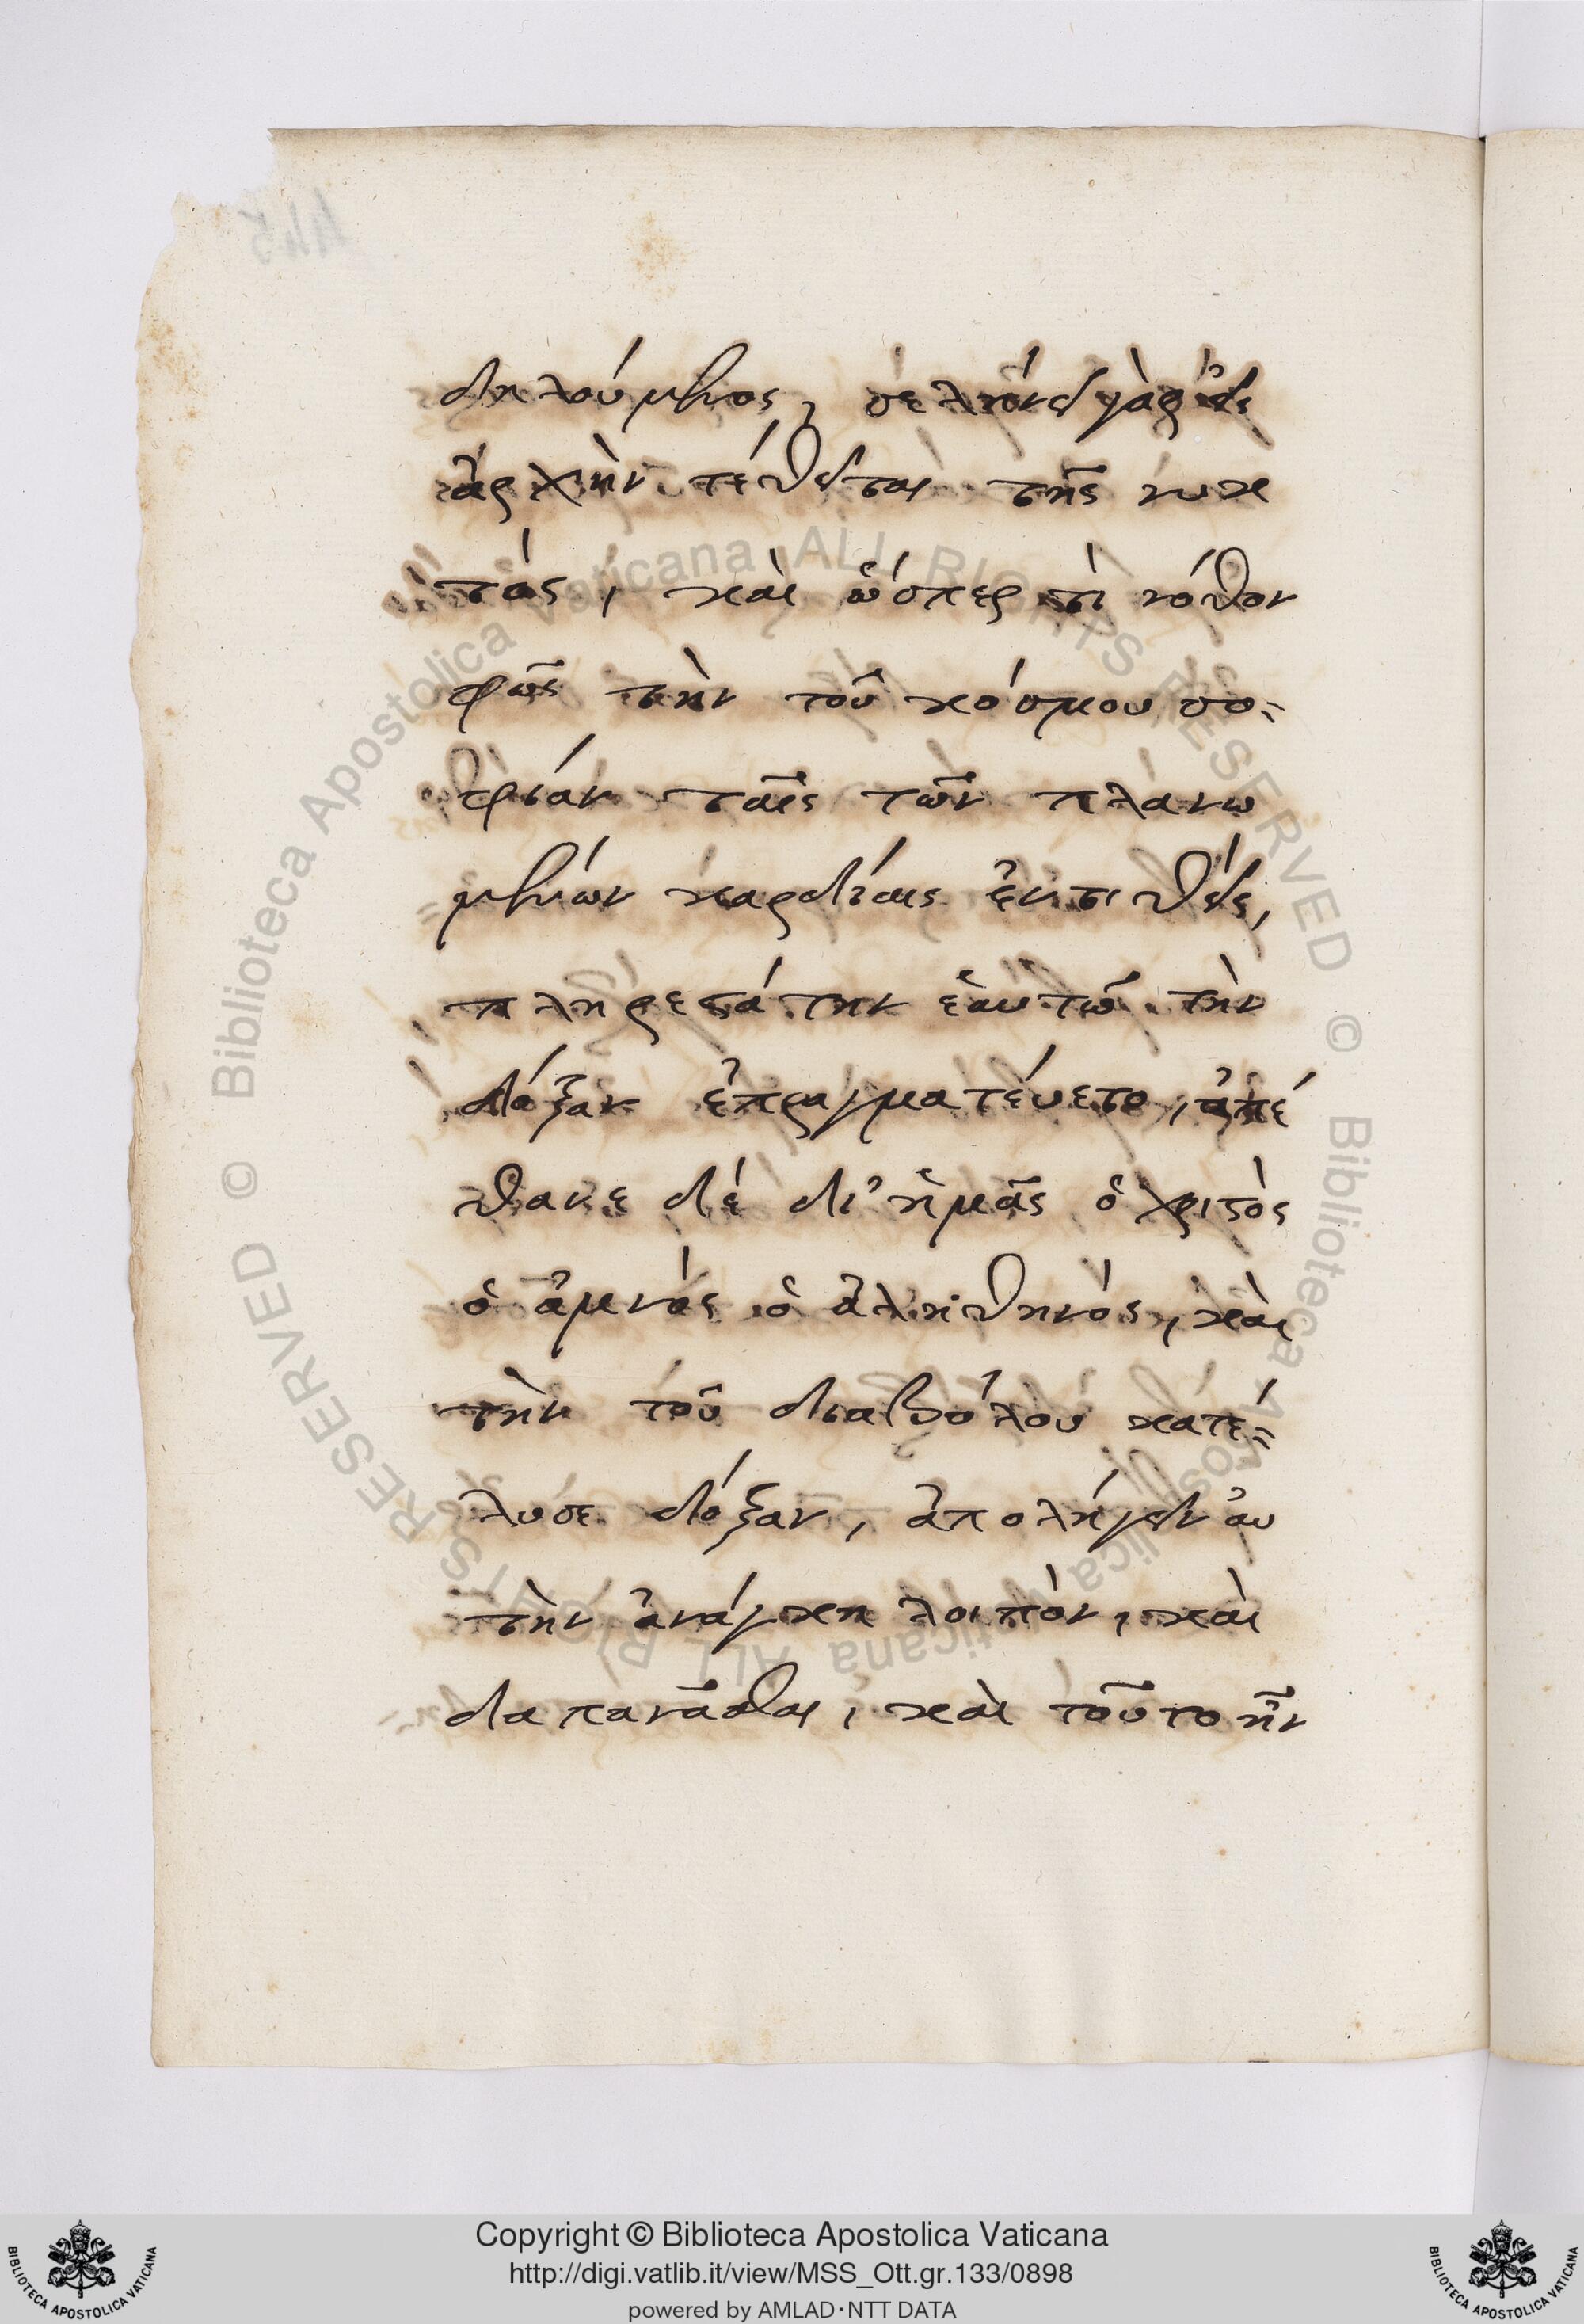 δηλούμενος, σελήνει γὰρ εἰς
ἀρχὴν τέθειται τῆς νυκ
τός, καὶ ὥσπερ τὶ νόθον
φῶς τὴν τοῦ κόσμου σο-
φίαν ταῖς τῶν πλανω
μένων καρδίαις ἐντιθείς,
πληρεστάτην ἑαυτῶ τὴν
δόξαν ἐπραγματέυετο, ἀπέ
θανε δὲ δι' ἡμᾶς ὁ χριστὸς
ὁ ἀμνὸς ὁ ἀληθηνὸς, καὶ
τὴν τοῦ διαβόλου κατέ-
λυσε δόξαν, ἀπολήγειν αὐ
τὴν ἀνάγκη λοιπὸν, καὶ
δαπανᾶσθαι, καὶ τοῦτο ἦν
445
Copyright © Biblioteca Apostolica Vaticana
http://digi.vatlib.it/view/MSS_Ott.gr.133/0898
powered by AMLAD·NTT DATA
BIBLIOTECA APOSTOLICA VATICANA
BIBLIOTECA APOSTOLICA VATICANA
© Biblioteca Apostolica Vaticana ALL RIGHTS RESERVED © Biblioteca Apostolica Vaticana ALL RIGHTS RESERVED